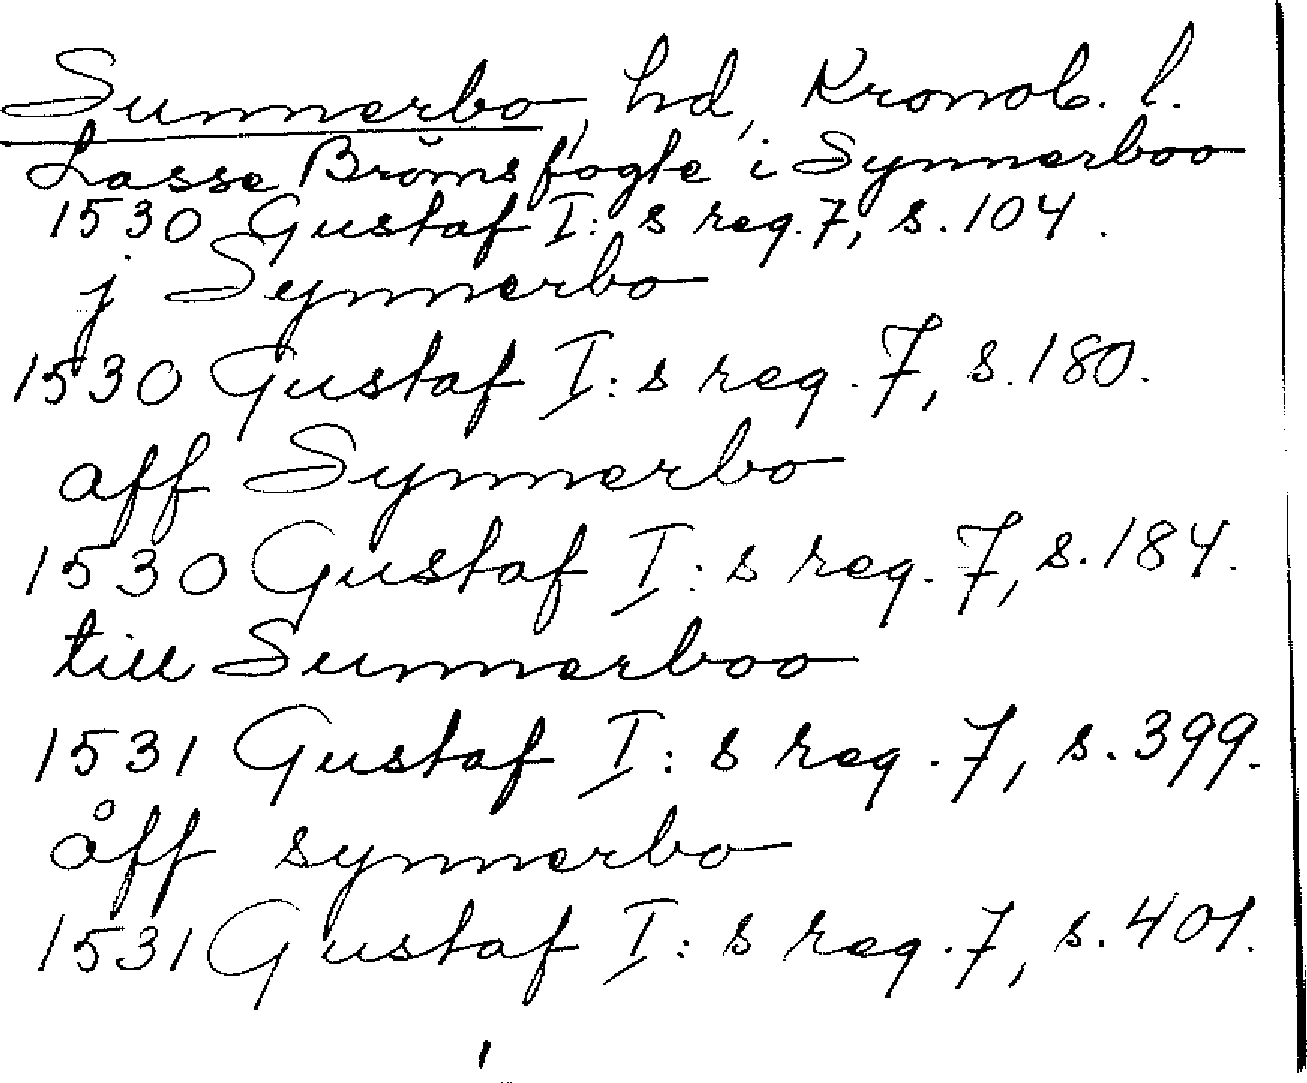 Sunnerbo, hd, Kronob. l.
Lasse Bröms fogte i Synnerboo
1530 Gustaf I:s reg. 7, s. 104.
j Synnerbo
1530 Gustaf I:s reg. 7, s. 180.
aff Synnerbo
1530 Gustaf I:s reg. 7, s. 184.
till Sunnerboo
1531 Gustaf I:s reg. 7, s. 399.
åff synnerbo
1531 Gustaf I:s reg. 7, s. 401.